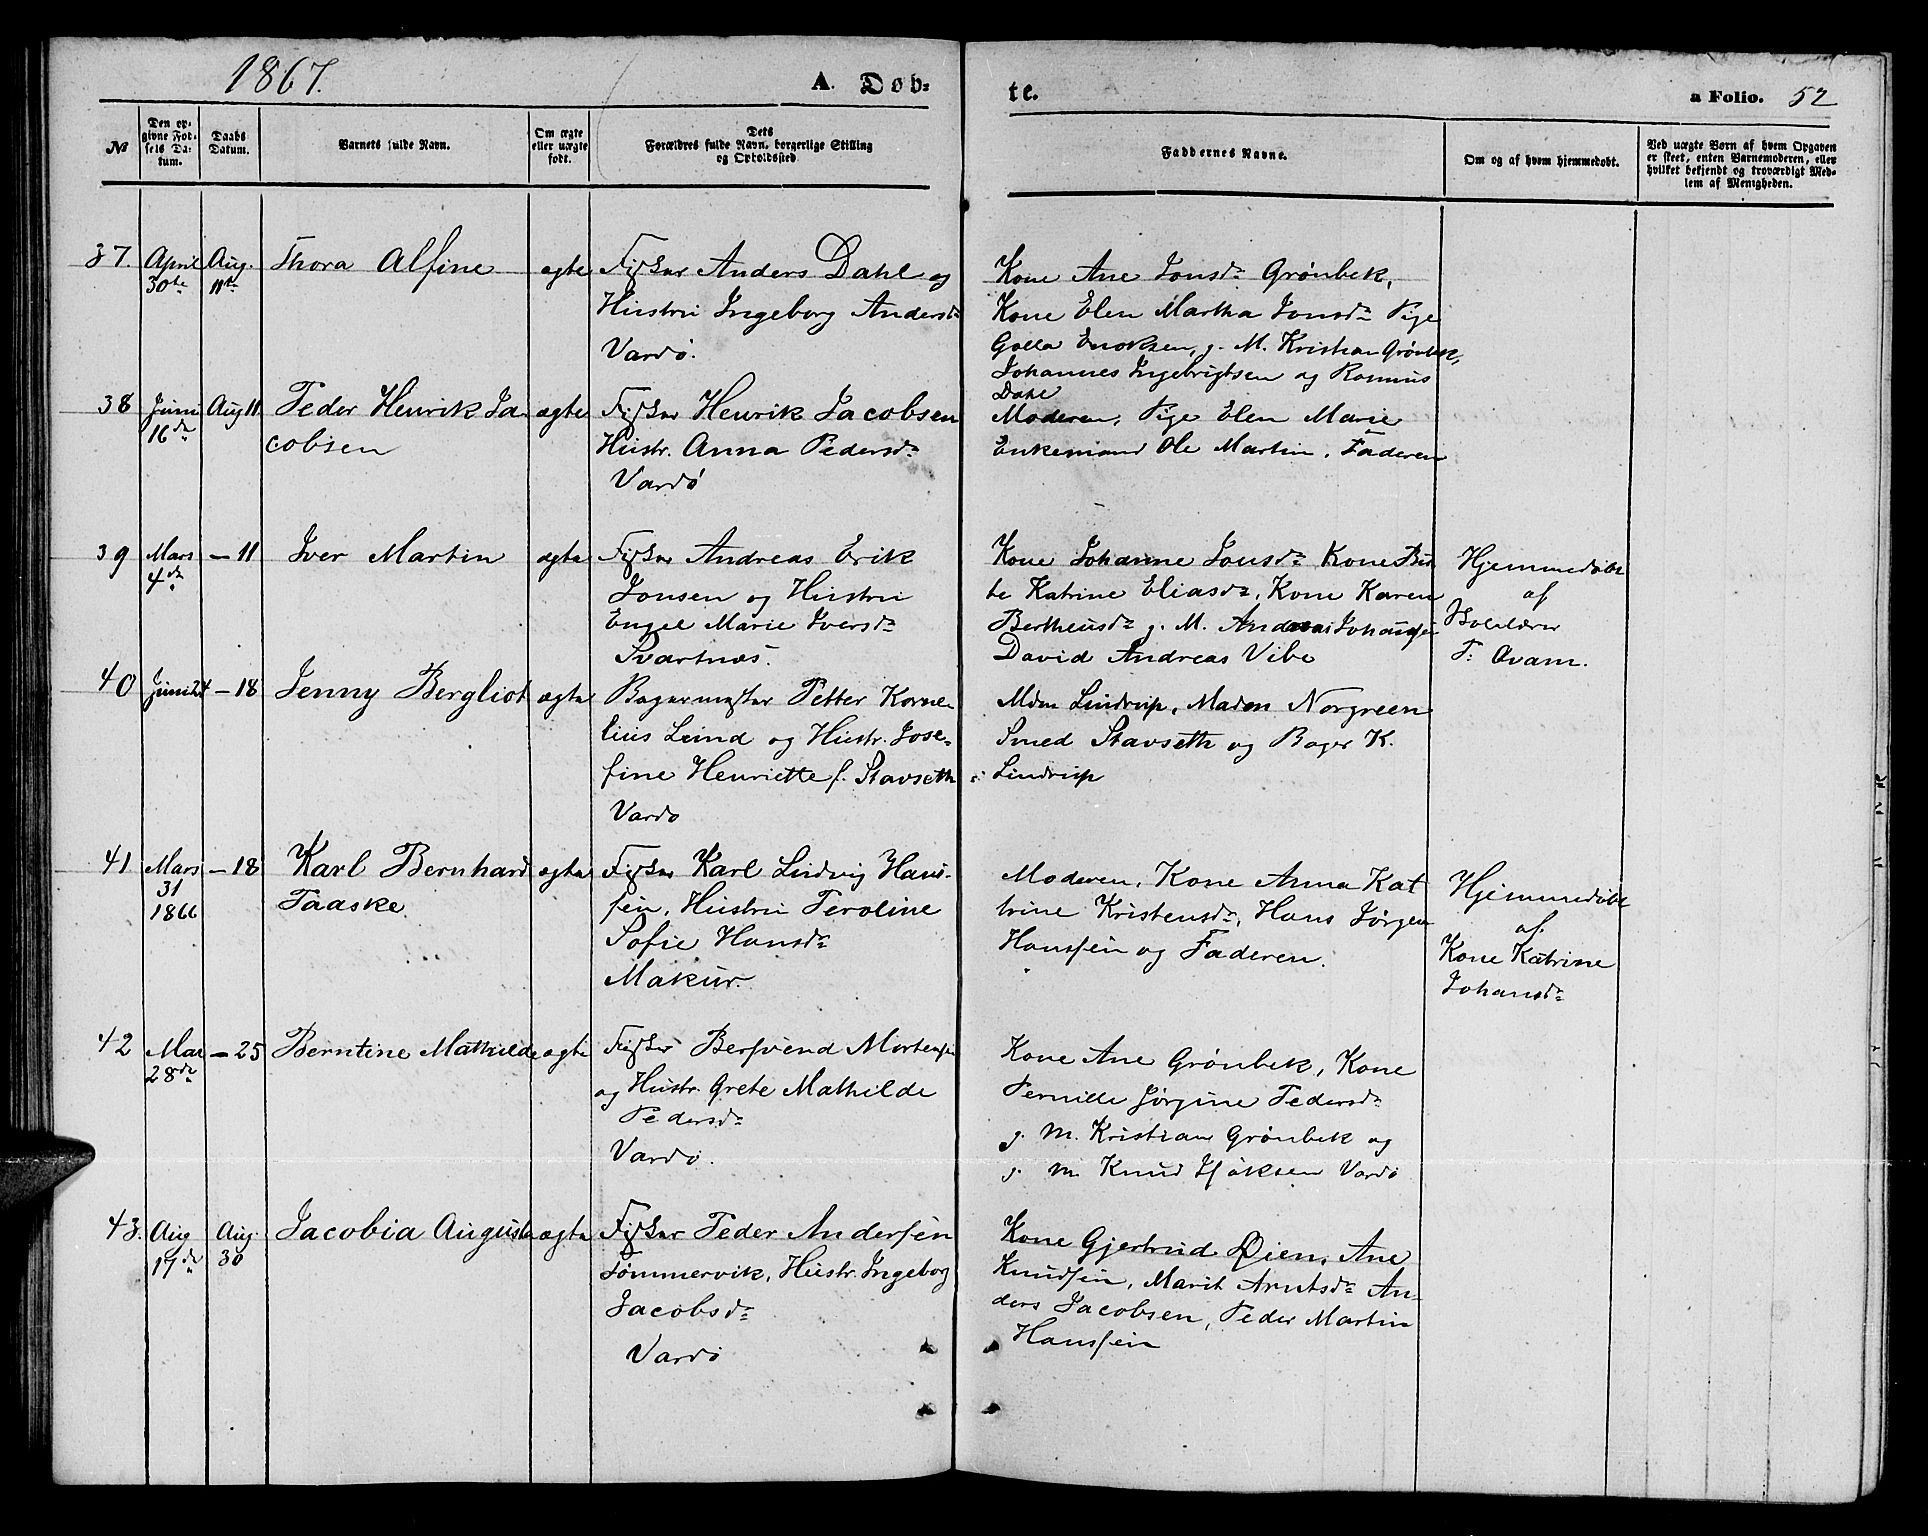 1867.
A. Døb-
te.
a Folio. 52
№
Den opgivne Fødsels Datum.
Daabs Datum.
Barnets fulde Navn.
Om ægte eller uægte født.
Dets Forældres fulde Navn, borgerlige Stilling og Opholdssted.
Faddernes Navne.
Om og af hvem hjemmedøbt.
Ved uægte Børn af hvem Opgaven er skeet, enten Barnemoderen, eller hvilket bekjendt og troværdigt Medlem af Menigheden.
37. April 30te Aug. 11te Thora Alfine ægte
Fisker Anders Dahl og
Hustru Ingeborg Andersdr
Vardø.
Kone Ane Jonsdr Grønbek,
Kone Elen Martha Jonsdr Pige
Golla Enoksen, g. M. Kristian Grønbek,
Johannes Ingebrigtsen og Rasmus
Dahl
38 Juni 16de Aug 11 Peder Henrik Ja-
cobsen
ægte
Fisker Henrik Jacobsen
Hustr. Anna Pedersdr
Vardø
Moderen, Pige Elen Marie
Enkemand Ole Martin, Faderen
39 Mars 4de - 11 Iver Martin ægte
Fisker Andreas Erik
Jonsen og Hustru
Engel Marie Iversdr
Svartnæs.
Kone Johanne Jonsdr Kone
Katrine Eliasdr, Kone Karen
Bertheusdr g. M. Johansen
David Andreas Vibe
Hjemmedøbt
af
T. Qvam.
40 Juni 24 - 18 Jenny Bergliot ægte
Bagermester Petter Korne-
lius Lund og Hustr. Jose-
fine Henriette f. Stavseth
Vardø
Mdm Lindrup, Madm Norgreen
Smed Stavseth og Bager K.
Lindrup
41 Mars 31 1866 - 18 Karl Bernhard
Taaske
ægte
Fisker Karl Ludvig Hans-
sen, Hustru Peroline
Sofie Hansdr
Makur.
Moderen, Kone Anna Kat
trine Kristensdr, Hans Jørgen
Hanssen og Faderen.
Hjemmedøbt
af
Kone Katrine
Johansdr
42 Mai 28de - 25 Berntine Mathilde ægte
Fisker Bersvend Mortensen
og Hustr. Grete Mathilde
Pedersdr
Vardø.
Kone Ane Grønbek, Kone
Pernille Jørgine Pedersdr
g. M. Kristian Grønbek og
g. M. Knud Isaksen Vardø
43. Aug 17de Aug. 30 Jacobia Augusta ægte
Fisker Peder Andersen
Tømmervik, Hustr. Ingeborg
Jacobsdr
Vardø
Kone Gjertrud Øien, Ane
Knudsen, Marit Arntsdr An-
ders Jacobsen, Peder Martin
Hanssen